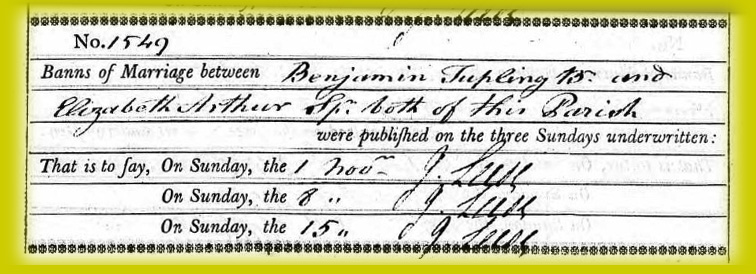 No. 1549
Banns of Marriage between Benjamin Tupling Br. and
Elizabeth Arthur Spr. both of this Parish
were publiſhed on the three Sundays underwritten:
That is to ſay, On Sunday, the 1 Novr. J.
On Sunday, the 8 " J.
On Sunday, the 15 " J.